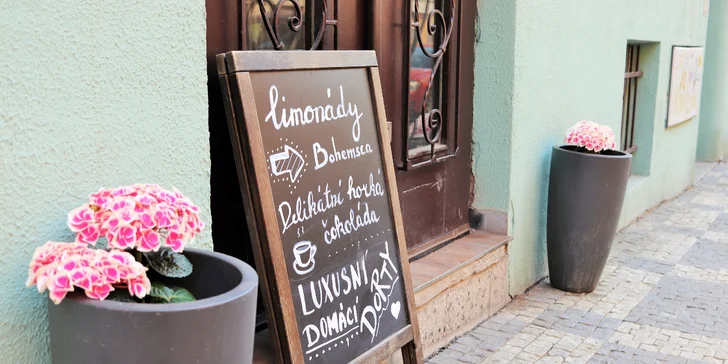 limonády
Bohemsca
Delikátní horká
čokoláda
LUXUSNÍ
DOMÁCÍ
DORTY